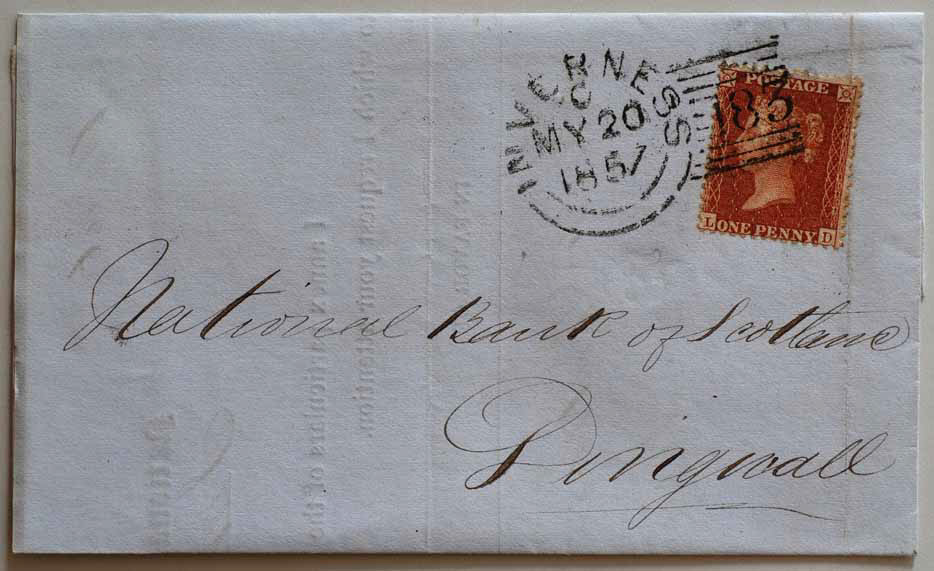 INVERNESS
C
MY 20
1857
183
POSTAGE
ONE PENNY
L D
National Bank of Scotland
Dingwall